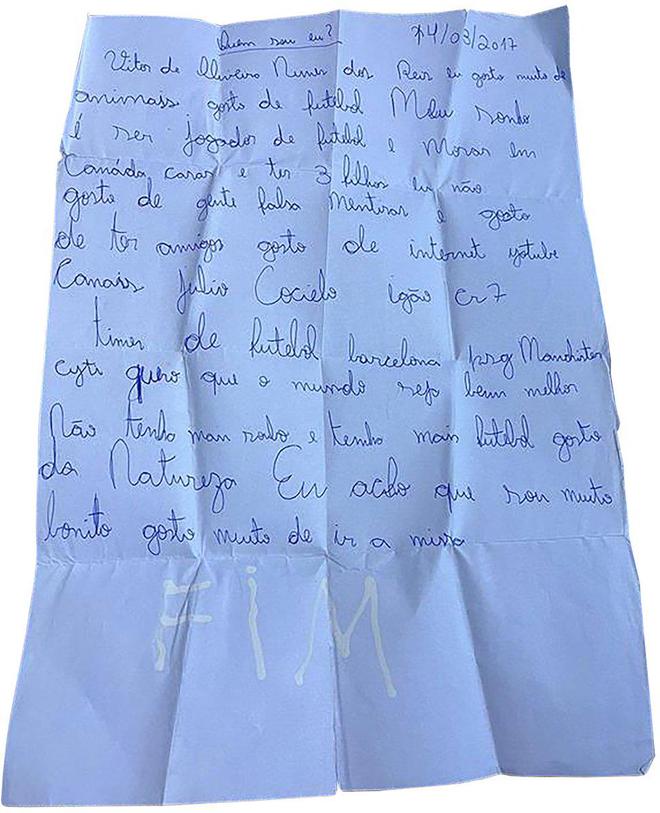 Quem sou eu? 14/03/2017
Vitor de Oliveira Nunes dos Reis eu gosto muito de
animais gosto de futebol Meu sonho
é ser jogador de futebol e Morar em
Canáda casar e ter 3 filhos eu não
gosto de gente falsa Mentiras e gosto
de ter amigos gosto de internet yotube
Canais Julio Cocielo igão cr7
times de futebol barcelona psg Manchister
cyti quero que o mundo seja bem melhor
Não tenha e tenha mais futebol gosto
da Natureza Eu acho que sou muito
bonito gosto muito de ir a missa
FiM